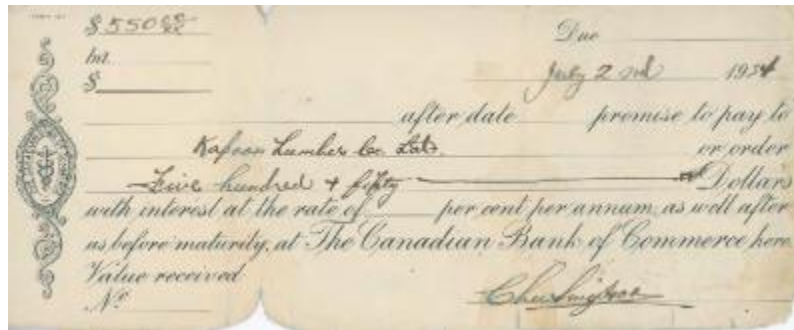 $ 550 00/xx
Due
Int.
$
July 2 nd 1954
after date promise to pay to
Kapoor Lumber Co. Ltd.
or order
Five hundred & fifty Dollars
with interest at the rate of per cent per annum, as well after
as before maturity, at The Canadian Bank of Commerce here
Value received
No